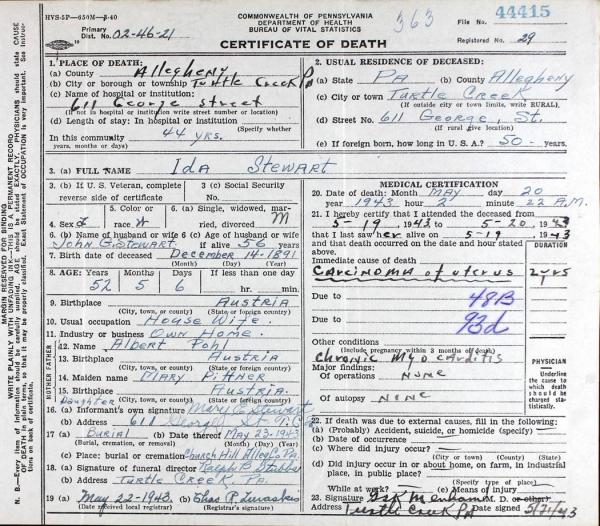 HVS-5P—650M—8-40
COMMONWEALTH OF PENNSYLVANIA
DEPARTMENT OF HEALTH
BUREAU OF VITAL STATISTICS
363
File No. 44415
Primary
Dist. No. 02-46-21
CERTIFICATE OF DEATH
Registered No. 29
1. PLACE OF DEATH:
(a) County Allegheny
(b) City or borough or township Turtle Creek Pa
(c) Name of hospital or institution:
611 George Street
(If not in hospital or institution write street number or location)
(d) Length of stay: In hospital or institution
(Specify whether
In this community 44 yrs.
years, months or days)
2. USUAL RESIDENCE OF DECEASED:
(a) State PA (b) County Allegheny
(c) City or town Turtle Creek
(If outside city or town limits, write RURAL)
(d) Street No. 611 George, St.
(If rural give location)
(e) If foreign born, how long in U.S.A.? 50- years.
3. (a) FULL NAME Ida Stewart
3. (b) If U. S. Veteran, complete
reverse side of certificate
3 (c) Social Security
No.
4. Sex F
5. Color or
race W
6. (a) Single, widowed, mar-
ried, divorced M
6. (b) Name of husband or wife
John G. Stewart
6 (c) Age of husband or wife
if alive 56 years
7. Birth date of deceased December 14-1891
(Month) (Day) (Year)
8. AGE: Years Months Days If less than one day
52 5 6 hr. min.
9. Birthplace Austria
(City, town, or county) (State or foreign country)
10. Usual occupation House Wife.
11. Industry or business Own Home.
FATHER
12. Name Albert Pohl
13. Birthplace Austria
(City, town, or county) (State or foreign country)
MOTHER
14. Maiden name Mary Pittner
15. Birthplace Austria.
(City, town, or county) (State or foreign country)
Daughter
16. (a) Informant's own signature Mary C Stewart
(b) Address 611 George St T.C. Pa
17. (a) Burial (b) Date thereof May 23-1943
(Burial, cremation, or removal) (Month) (Day) (Year)
(c) Place: burial or cremation Church Hill Alleg Co. Pa.
18. (a) Signature of funeral director Ralph B.
(b) Address Turtle Creek, Pa.
19. (a) May 22-1943. (b) Chas P.
(Date received local registrar) (Registrar's signature)
MEDICAL CERTIFICATION
20. Date of death: Month May day 20
year 1943 hour 2 minute 22 A.M.
21. I hereby certify that I attended the deceased from
5-19 1943 to 5-20, 1943
that I last saw her alive on 5-19 1943
and that death occurred on the date and hour stated above.
DURATION
Immediate cause of death
Carcinoma of uterus 2 yrs
Due to 48B
Due to 93d
Other conditions
(Include pregnancy within 3 months of death)
Chronic Myocarditis
Major findings:
Of operations None
Of autopsy None
PHYSICIAN
Underline
the cause to
which death
should be
charged sta-
tistically.
22. If death was due to external causes, fill in the following:
(a) (Probably) Accident, suicide, or homicide (specify)
(b) Date of occurrence
(c) Where did injury occur?
(City or town) (County) (State)
(d) Did injury occur in or about home, on farm, in industrial
place, in public place?
(Specify type of place)
While at work? (e) Means of injury
23. Signature M. D. or other)
Address Turtle Creek Pa Date signed 5/21/43
MARGIN RESERVED FOR BINDING
WRITE PLAINLY WITH UNFADING INK—THIS IS A PERMANENT RECORD